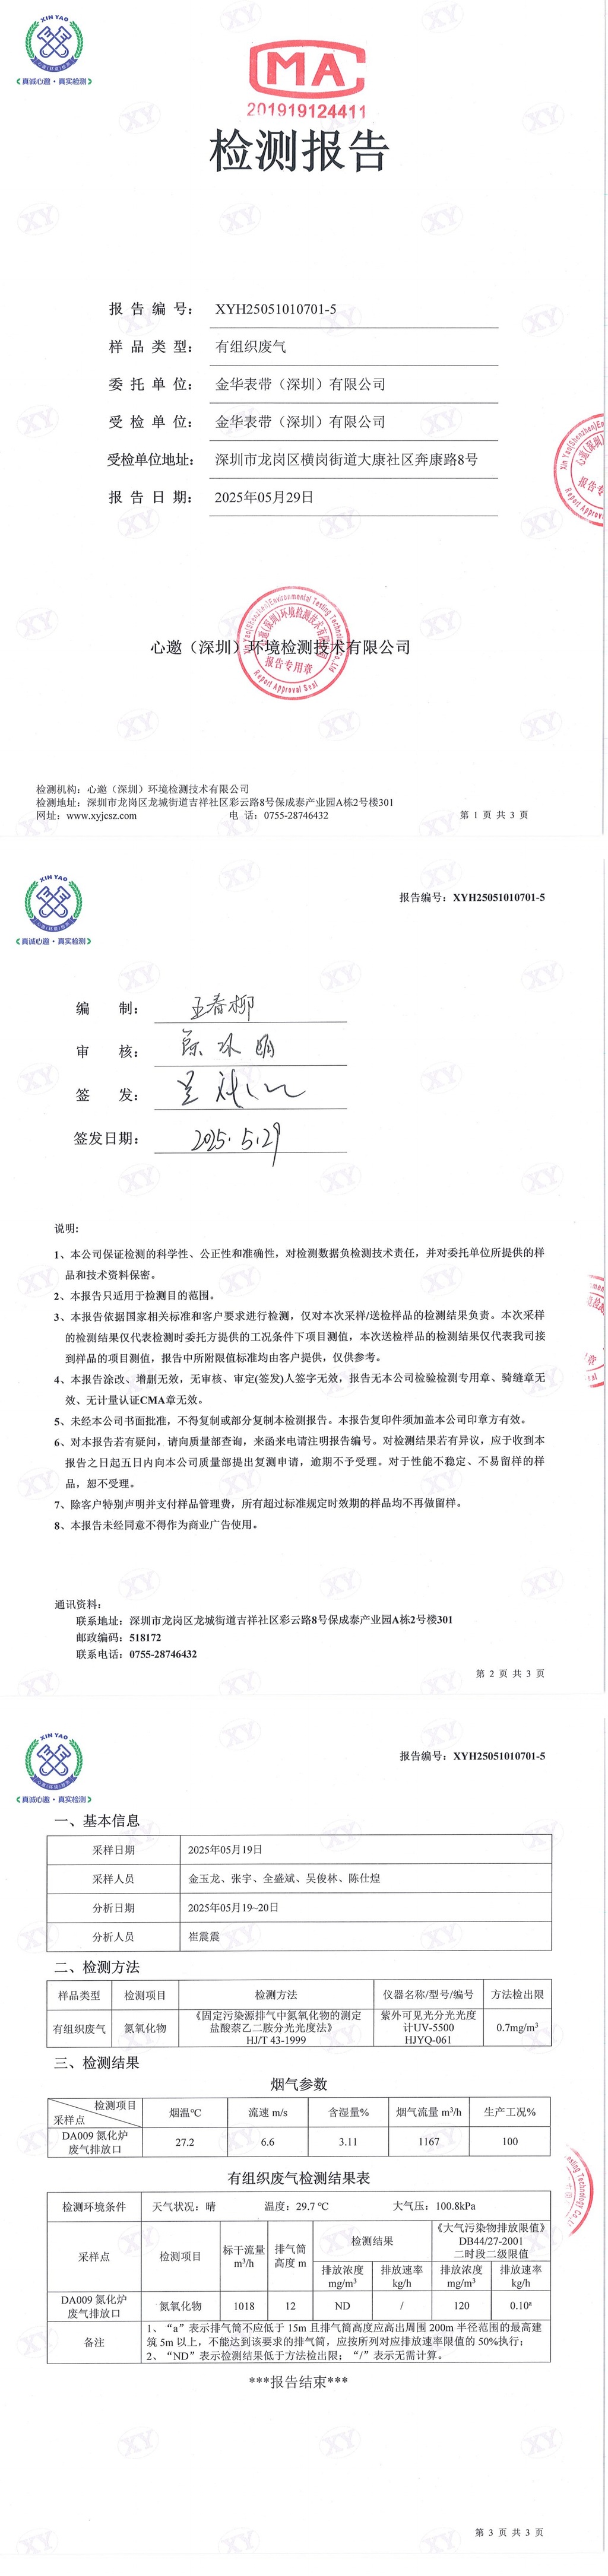 XIN YAO
《真诚心邀·真实检测》
MA
201919124411
检测报告
报告编号： XYH25051010701-5
样品类型： 有组织废气
委托单位： 金华表带（深圳）有限公司
受检单位： 金华表带（深圳）有限公司
受检单位地址： 深圳市龙岗区横岗街道大康社区奔康路8号
报告日期： 2025年05月29日
心邀（深圳）环境检测技术有限公司
报告专用章
Report Approval Seal
检测机构：心邀（深圳）环境检测技术有限公司
检测地址：深圳市龙岗区龙城街道吉祥社区彩云路8号保成泰产业园A栋2号楼301
网址：www.xyjcsz.com 电 话：0755-28746432 第 1 页 共 3 页
XIN YAO
《真诚心邀·真实检测》
报告编号：XYH25051010701-5
编 制： 王春柳
审 核：
签 发：
签发日期： 2025.5.29
说明：
1、本公司保证检测的科学性、公正性和准确性，对检测数据负检测技术责任，并对委托单位所提供的样
品和技术资料保密。
2、本报告只适用于检测目的范围。
3、本报告依据国家相关标准和客户要求进行检测，仅对本次采样/送检样品的检测结果负责。本次采样
的检测结果仅代表检测时委托方提供的工况条件下项目测值，本次送检样品的检测结果仅代表我司接
到样品的项目测值，报告中所附限值标准均由客户提供，仅供参考。
4、本报告涂改、增删无效，无审核、审定(签发)人签字无效，报告无本公司检验检测专用章、骑缝章无
效、无计量认证CMA章无效。
5、未经本公司书面批准，不得复制或部分复制本检测报告。本报告复印件须加盖本公司印章方有效。
6、对本报告若有疑问，请向质量部查询，来函来电请注明报告编号。对检测结果若有异议，应于收到本
报告之日起五日内向本公司质量部提出复测申请，逾期不予受理。对于性能不稳定、不易留样的样
品，恕不受理。
7、除客户特别声明并支付样品管理费，所有超过标准规定时效期的样品均不再做留样。
8、本报告未经同意不得作为商业广告使用。
通讯资料：
联系地址：深圳市龙岗区龙城街道吉祥社区彩云路8号保成泰产业园A栋2号楼301
邮政编码：518172
联系电话：0755-28746432
第 2 页 共 3 页
XIN YAO
《真诚心邀·真实检测》
报告编号：XYH25051010701-5
一、基本信息
采样日期 2025年05月19日
采样人员 金玉龙、张宇、全盛斌、吴俊林、陈仕煌
分析日期 2025年05月19~20日
分析人员 崔震震
二、检测方法
样品类型 检测项目 检测方法 仪器名称/型号/编号 方法检出限
有组织废气 氮氧化物 《固定污染源排气中氮氧化物的测定 盐酸萘乙二胺分光光度法》 HJ/T 43-1999 紫外可见光分光光度计UV-5500 HJYQ-061 0.7mg/m³
三、检测结果
烟气参数
检测项目 采样点 烟温℃ 流速 m/s 含湿量% 烟气流量 m³/h 生产工况%
DA009 氮化炉废气排放口 27.2 6.6 3.11 1167 100
有组织废气检测结果表
检测环境条件 天气状况：晴 温度：29.7 ℃ 大气压：100.8kPa
采样点 检测项目 标干流量 m³/h 排气筒高度 m 检测结果 《大气污染物排放限值》 DB44/27-2001 二时段二级限值
排放浓度 mg/m³ 排放速率 kg/h 排放浓度 mg/m³ 排放速率 kg/h
DA009 氮化炉废气排放口 氮氧化物 1018 12 ND / 120 0.10ª
备注 1、“a”表示排气筒不应低于 15m 且排气筒高度应高出周围 200m 半径范围的最高建
筑 5m 以上，不能达到该要求的排气筒，应按所列对应排放速率限值的 50%执行；
2、“ND”表示检测结果低于方法检出限；“/”表示无需计算。
***报告结束***
第 3 页 共 3 页